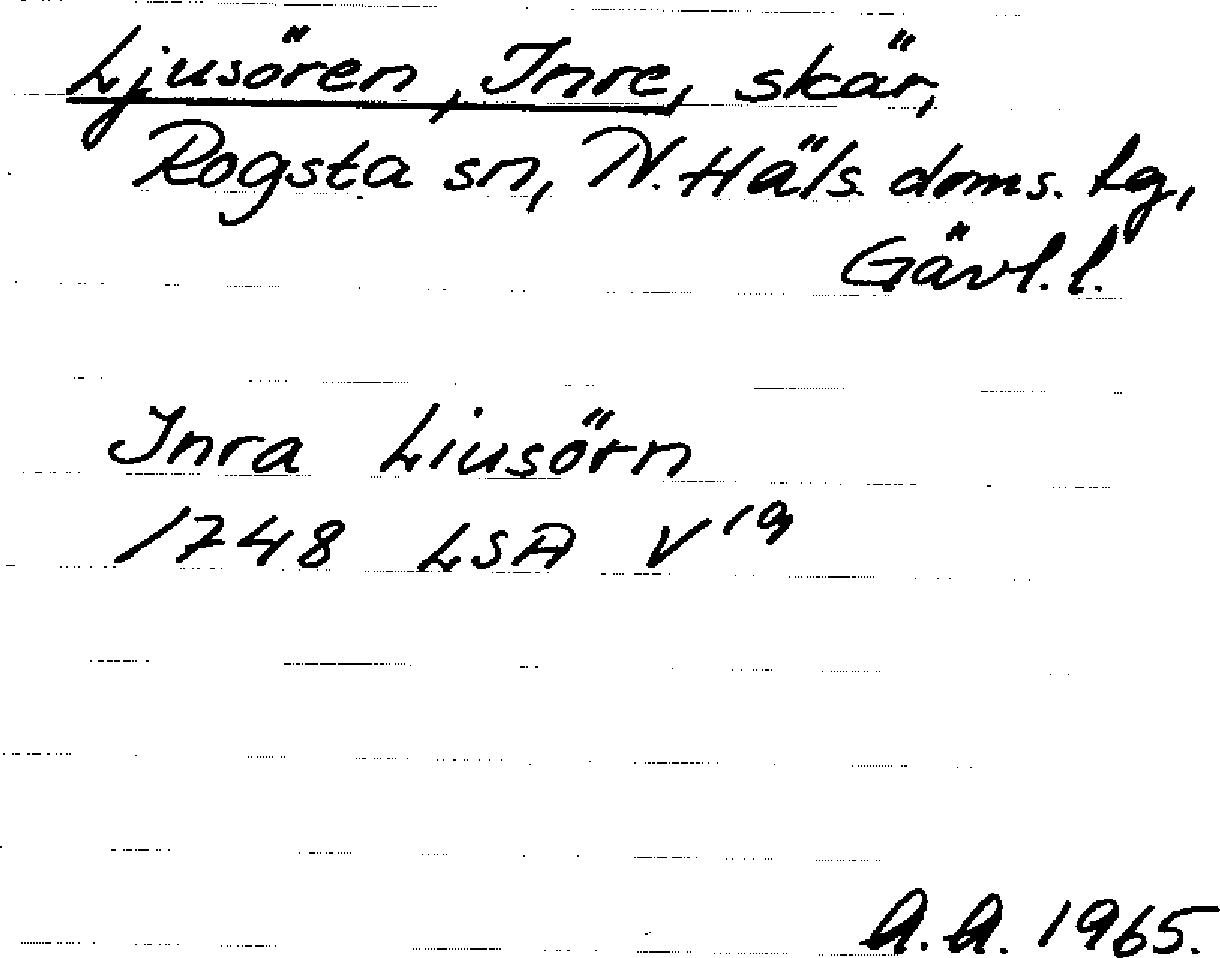 Ljusören, Inre, skär,
Rogsta sn, N. Häls. doms. tg,
Gävl. l.
Inra Liusörn
1748 LSA V 19
A.A. 1965.